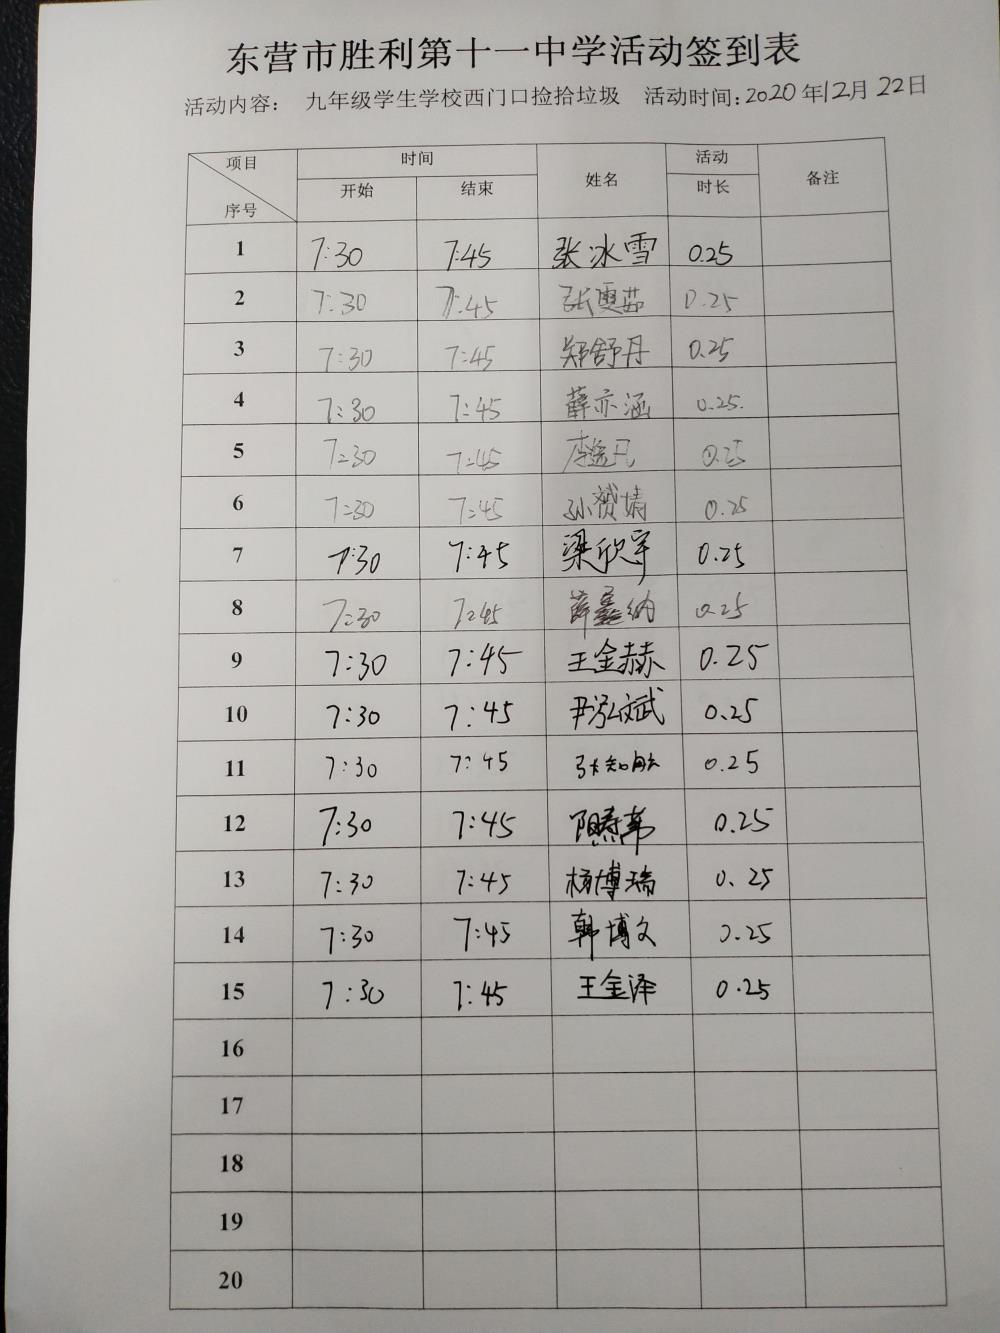 东营市胜利第十一中学活动签到表
活动内容： 九年级学生学校西门口捡拾垃圾 活动时间：2020年12月22日
项目 时间 姓名 活动 备注
序号 开始 结束 时长
1 7:30 7:45 张冰雪 0.25
2 7:30 7:45 0.25
3 7:30 7:45 郑舒丹 0.25
4 7:30 7:45 薛亦涵 0.25.
5 7:30 7:45 0.25
6 7:30 7:45 孙赟婧 0.25
7 7:30 7:45 梁欣宇 0.25
8 7:30 7:45 薛鑫纳 0.25
9 7:30 7:45 王金赫 0.25
10 7:30 7:45 尹泓斌 0.25
11 7:30 7:45 张知航 0.25
12 7:30 7:45 0.25
13 7:30 7:45 杨博瑞 0.25
14 7:30 7:45 韩博文 0.25
15 7:30 7:45 王金泽 0.25
16
17
18
19
20